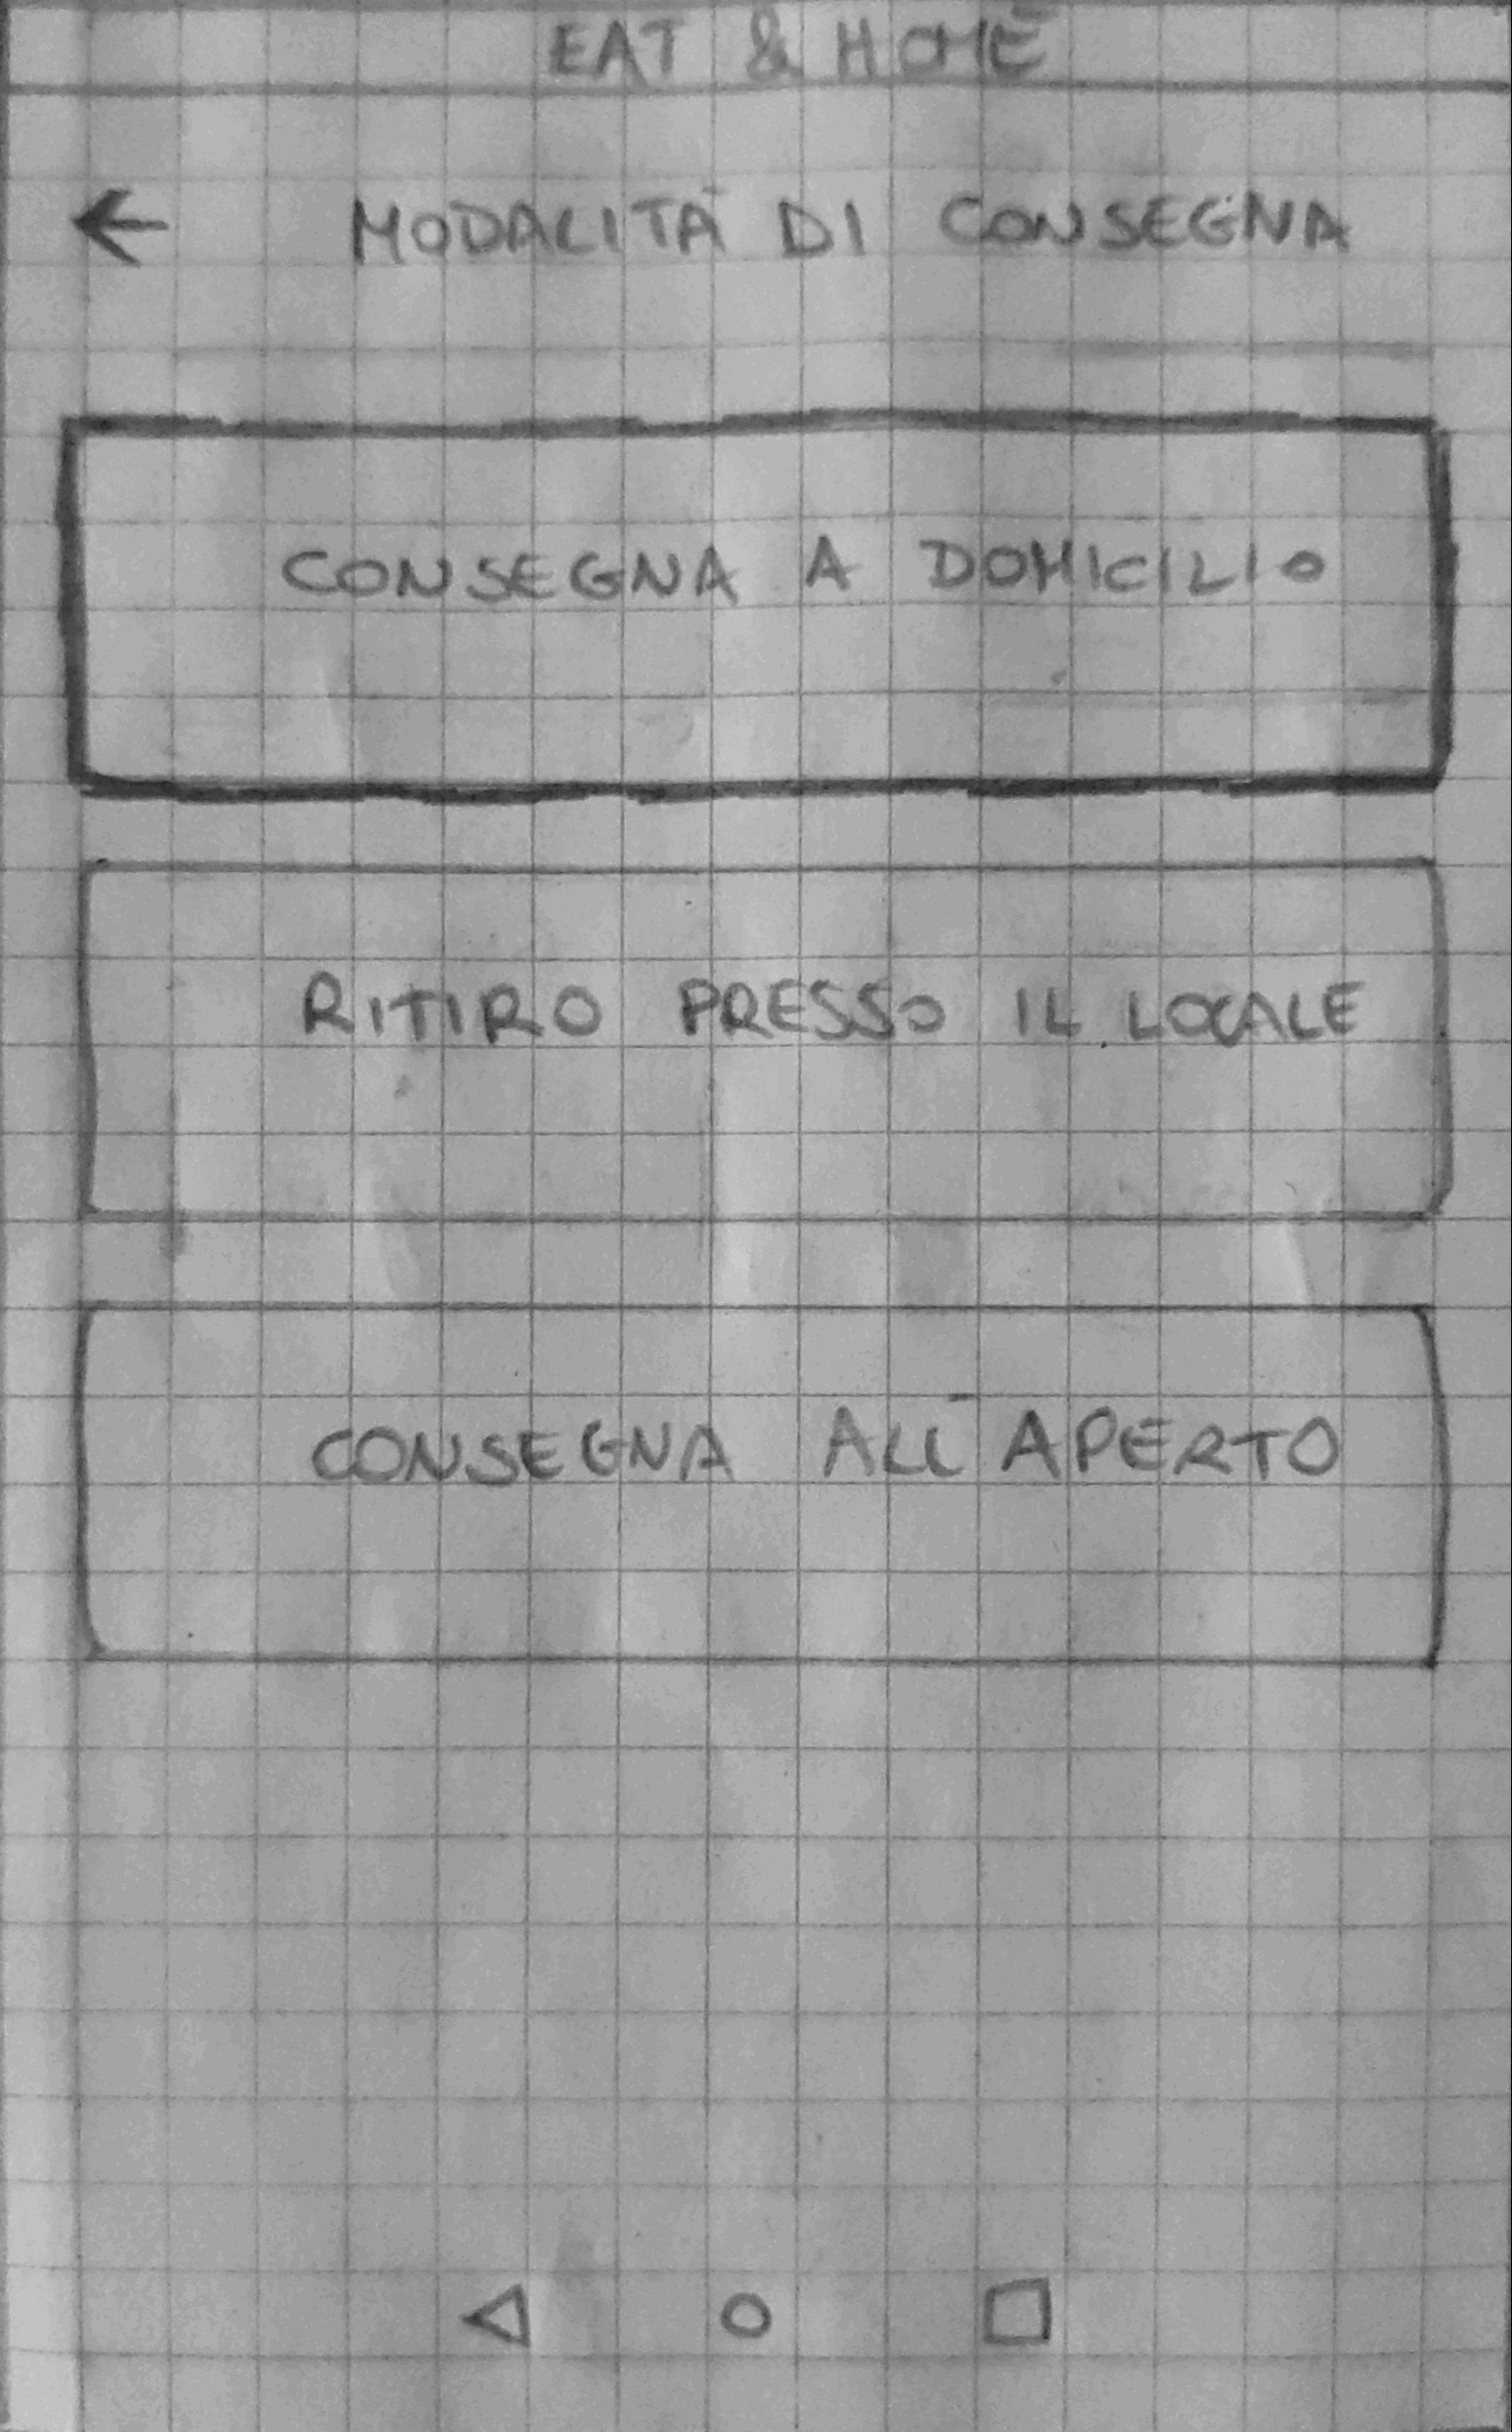 EAT & HOME
MODALITÀ DI CONSEGNA
CONSEGNA A DOMICILIO
RITIRO PRESSO IL LOCALE
CONSEGNA ALL'APERTO